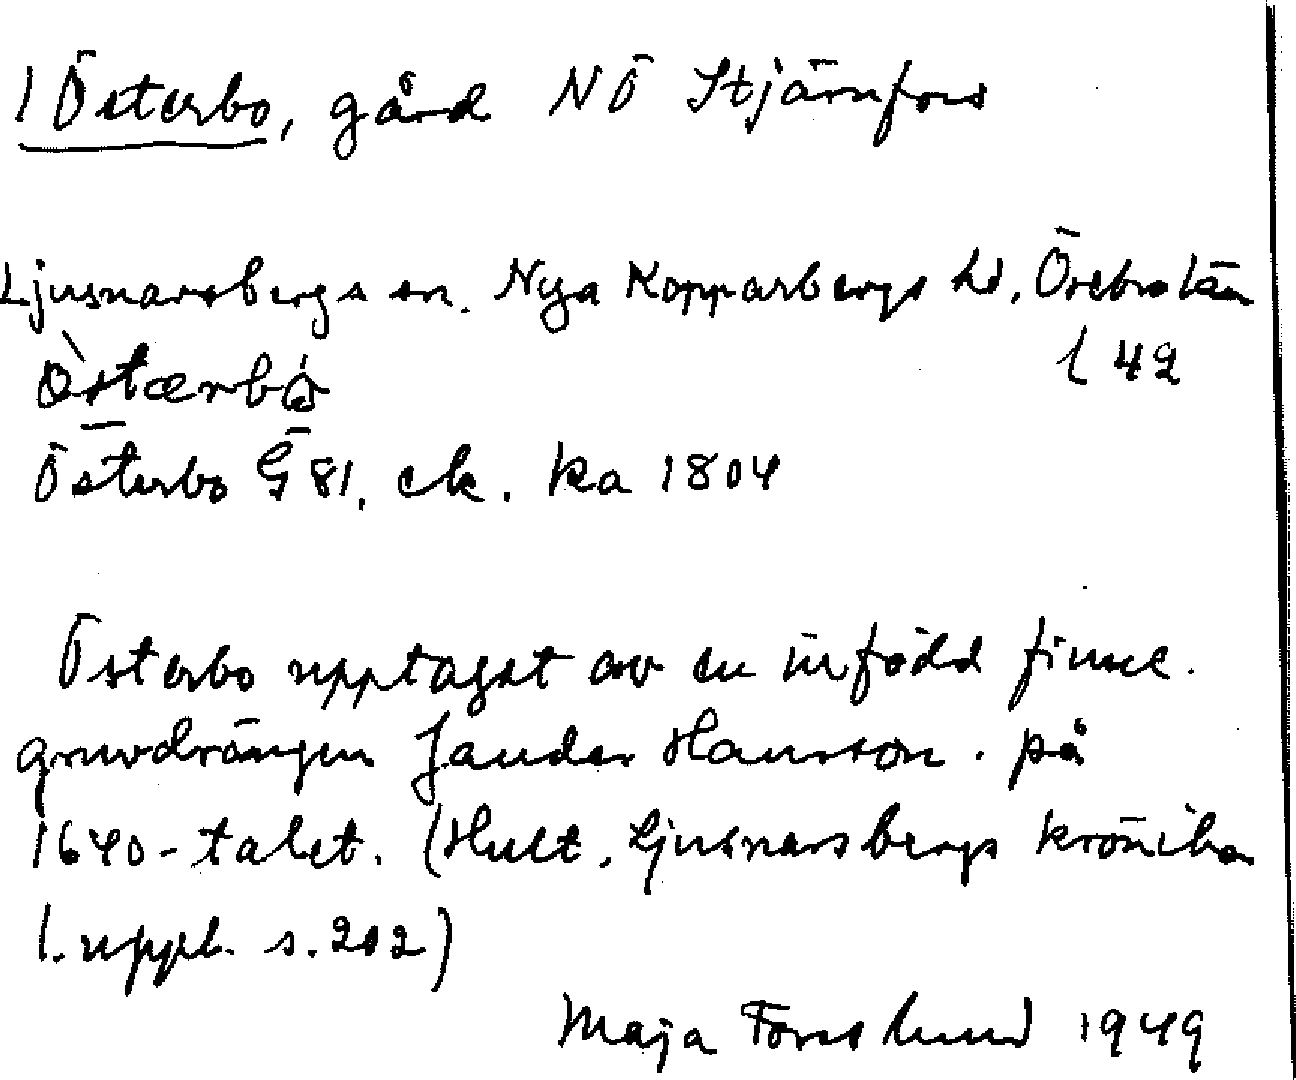 1 Österbo, gård NÖ Stjärnfors
Ljusnarsbergs sn. Nya Kopparbergs hd, Örebro län
l 42
Österbo G 81, ek. ka 1804
Österbo upptaget av en infödd finne.
gruvdrängen Jander Hansson. på
1640-talet. (Hult, Ljusnarsbergs krönika
1. uppl. s. 202)
Maja Forslund 1949